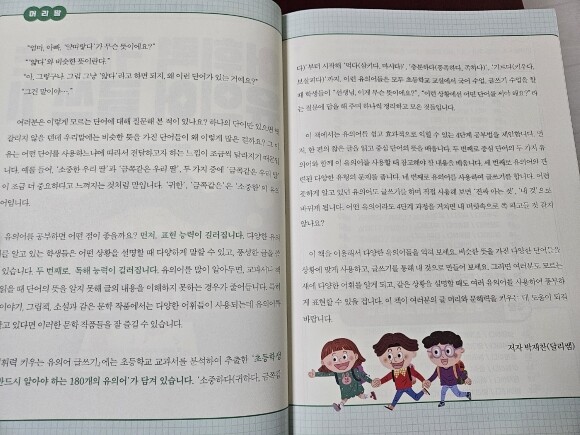 머리말
"엄마, 아빠, '산뜻하다'가 무슨 뜻이에요?"
와 비슷한 뜻이란다."
"아, 그렇구나. 그럼 그냥 라고 하면 되지, 왜 이런 단어가 있는 거예요?"
"그건 말이야…."
여러분은 이렇게 모르는 단어에 대해 질문해 본 적이 있나요? 하나의 단어만 있으면
갈리지 않을 텐데 우리말에는 비슷한 뜻을 가진 단어들이 왜 이렇게 많은 걸까요? 그
유는 어떤 단어를 사용하느냐에 따라서 전달하고자 하는 느낌이 조금씩 달라지기 때문입
니다. 예를 들어, '소중한 우리 딸'과 '금쪽같은 우리 딸', 두 가지 중에 '금쪽같은 우리 딸'
이 조금 더 중요하다고 느껴지는 것처럼 말입니다. '귀한', '금쪽같은'은 '소중한'의 유
어랍니다.
유의어를 공부하면 어떤 점이 좋을까요? 먼저, 표현 능력이 길러집니다. 다양한 유의
를 알고 있는 학생들은 어떤 상황을 설명할 때 다양하게 말할 수 있고, 풍성한 글을 쓸
있습니다. 두 번째로, 독해 능력이 길러집니다. 유의어를 많이 알아두면, 교과서나 책
읽을 때 단어의 뜻을 알지 못해 글의 내용을 이해하지 못하는 경우가 줄어듭니다. 특히
이야기, 그림책, 소설과 같은 문학 작품에서는 다양한 어휘들이 사용되는데 유의어를
고 있다면 이러한 문학 작품들을 잘 즐길 수 있습니다.
휘력 키우는 유의어 글쓰기』에는 초등학교 교과서를 분석하여 추출한 '초등학생
반드시 알아야 하는 180개의 유의어'가 담겨 있습니다. '소중하다(귀하다, 금쪽같
다)'부터 시작해 '먹다(삼키다, 마시다)', '충분하다(풍족하다, 족하다)', '기르다(키우다,
보살피다)'까지. 이런 유의어들은 모두 초등학교 교실에서 국어 수업, 글쓰기 수업을 할
때 학생들이 "선생님, 이게 무슨 뜻이에요?", "이런 상황에선 어떤 단어를 써야 해요?"라
는 질문에 답을 해 주며 하나씩 정리하고 모은 것들입니다.
이 책에서는 유의어를 쉽고 효과적으로 익힐 수 있는 4단계 공부법을 제안합니다. 먼
저, 한 편의 짧은 글을 읽고 중심 단어의 뜻을 배웁니다. 두 번째로 중심 단어의 두 가지
유의어와 함께 이 유의어를 사용할 때 참고해야 할 내용을 배웁니다. 세 번째로 유의어와 관
련된 다양한 유형의 문제를 풉니다. 네 번째로 유의어를 사용하여 글쓰기를 합니다. 어렴
풋하게 알고 있던 유의어도 글쓰기를 하며 직접 사용해 보면 '진짜 아는 것', '내 것'으로
바뀌게 됩니다. 어떤 유의어라도 4단계 과정을 거치면 내 머릿속으로 쏙 파고들 것 같지
않나요?
이 책을 이용해서 다양한 유의어들을 익혀 보세요. 비슷한 뜻을 가진 다양한 단어들을
상황에 맞게 사용하고, 글쓰기를 통해 내 것으로 만들어 보세요. 그러면 여러분도 모르는
새에 다양한 어휘를 알게 되고, 같은 상황을 설명할 때도 여러 유의어를 사용하여 풍부하
게 표현할 수 있을 겁니다. 이 책이 여러분의 글 머리와 문해력을 키우는 데 도움이 되길
바랍니다.
저자 박재찬(달리쌤)